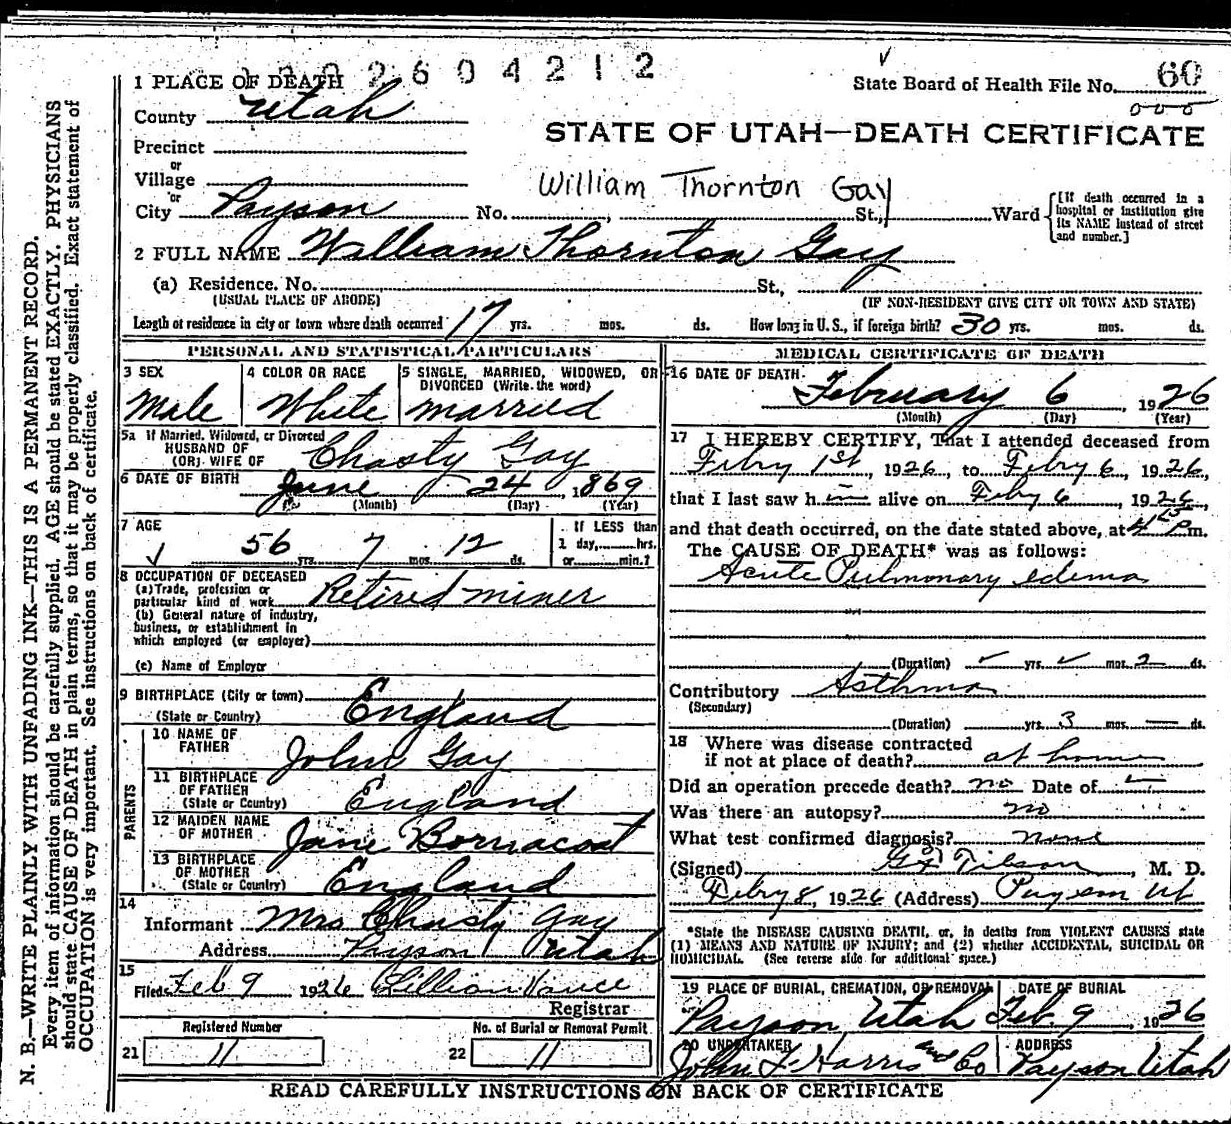 2604212
State Board of Health File No. 60
1 PLACE OF DEATH
County Utah
STATE OF UTAH—DEATH CERTIFICATE
Precinct
or
Village
William Thornton Gay
or
City Payson No. , St., Ward
[If death occurred in a
hospital or institution give
its NAME instead of street
and number.]
2 FULL NAME William Thornton Gay
(a) Residence. No. St.,
(USUAL PLACE OF ABODE) (IF NON-RESIDENT GIVE CITY OR TOWN AND STATE)
Length of residence in city or town where death occurred 17 yrs. mos. ds. How long in U.S., if foreign birth? 30 yrs. mos. ds.
PERSONAL AND STATISTICAL PARTICULARS
3 SEX
Male
4 COLOR OR RACE
White
5 SINGLE, MARRIED, WIDOWED, OR
DIVORCED (Write the word)
married
5a If Married, Widowed, or Divorced
HUSBAND OF
(OR) WIFE OF Chasty Gay
6 DATE OF BIRTH June 24, 1869
(Month) (Day) (Year)
7 AGE
56 yrs. 7 mos. 12 ds.
If LESS than
1 day, hrs.
or min.?
8 OCCUPATION OF DECEASED
(a) Trade, profession or
particular kind of work Retired miner
(b) General nature of industry,
business, or establishment in
which employed (or employer)
(c) Name of Employer
9 BIRTHPLACE (City or town)
(State or Country) England
PARENTS
10 NAME OF
FATHER John Gay
11 BIRTHPLACE
OF FATHER
(State or Country) England
12 MAIDEN NAME
OF MOTHER Jane Bornacoat
13 BIRTHPLACE
OF MOTHER
(State or Country) England
14
Informant Mrs Chasty Gay
Address Payson Utah
15
Filed Feb 9 1926 Lillian Vance
Registrar
Registered Number
21 11
No. of Burial or Removal Permit
22 11
MEDICAL CERTIFICATE OF DEATH
16 DATE OF DEATH
February 6 1926
(Month) (Day) (Year)
17 I HEREBY CERTIFY, That I attended deceased from
Febry 1st, 1926, to Febry 6, 1926,
that I last saw h im alive on Feby 6 1926,
and that death occurred, on the date stated above, at 4 15 P m.
The CAUSE OF DEATH* was as follows:
Acute Pulmonary edema
(Duration) yrs. mos. 2 ds.
Contributory Asthma
(Secondary)
(Duration) yrs. 3 mos. — ds.
18 Where was disease contracted
if not at place of death? at home
Did an operation precede death? no Date of
Was there an autopsy? no
What test confirmed diagnosis? none
(Signed) Tilson, M. D.
Febry 8, 1926 (Address) Payson Ut
*State the DISEASE CAUSING DEATH, or, in deaths from VIOLENT CAUSES state
(1) MEANS AND NATURE OF INJURY; and (2) whether ACCIDENTAL, SUICIDAL OR
HOMICIDAL. (See reverse side for additional space.)
19 PLACE OF BURIAL, CREMATION, OR REMOVAL
Payson, Utah
DATE OF BURIAL
Feb. 9, 1926
20 UNDERTAKER
John L Harris and Co
ADDRESS
Payson Utah
READ CAREFULLY INSTRUCTIONS ON BACK OF CERTIFICATE
N. B.—WRITE PLAINLY WITH UNFADING INK—THIS IS A PERMANENT RECORD.
Every item of information should be carefully supplied. AGE should be stated EXACTLY. PHYSICIANS
should state CAUSE OF DEATH in plain terms, so that it may be properly classified. Exact statement of
OCCUPATION is very important. See instructions on back of certificate.